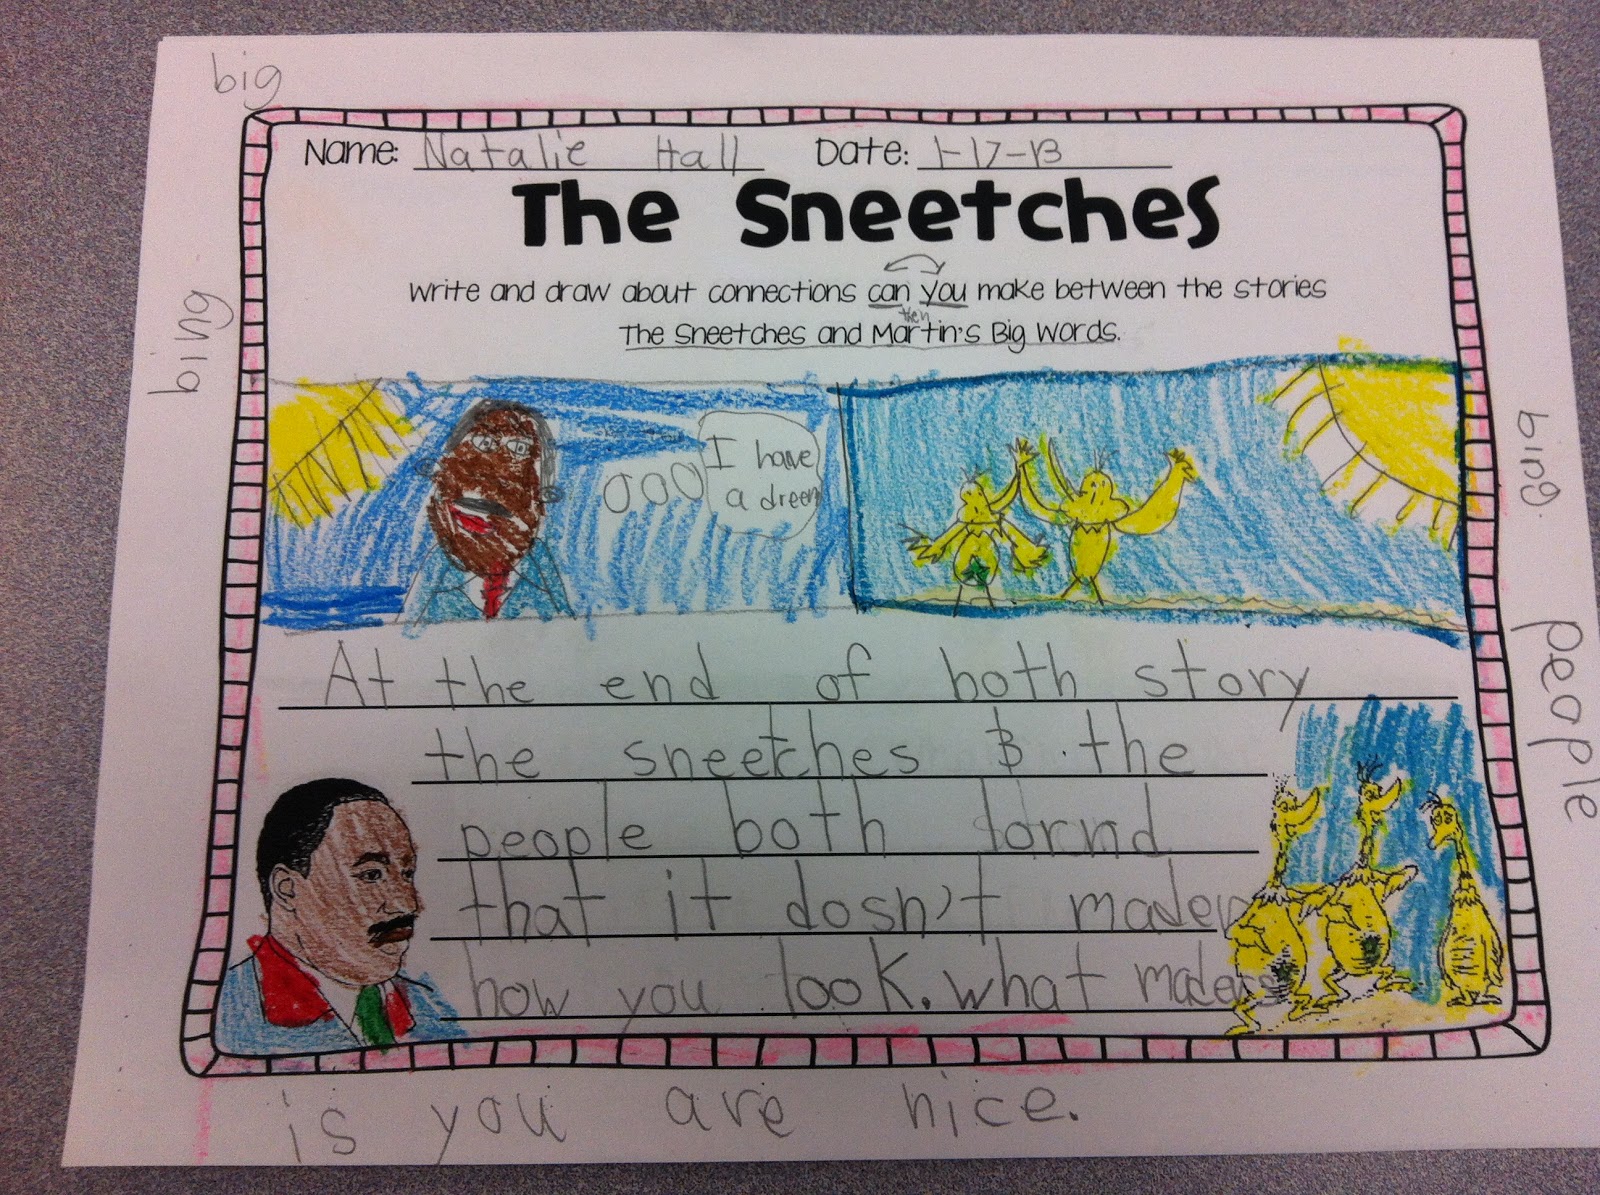 big
Name: Natalie Hall Date: 1-17-13
The Sneetches
Write and draw about connections can you make between the stories
then
The Sneetches and Martin's Big Words.
bing
I have
a dreem
bing.
people
At the end of both story
the sneetches & the
people both
that it dosn't maders
how you look. what maders
is you are nice.